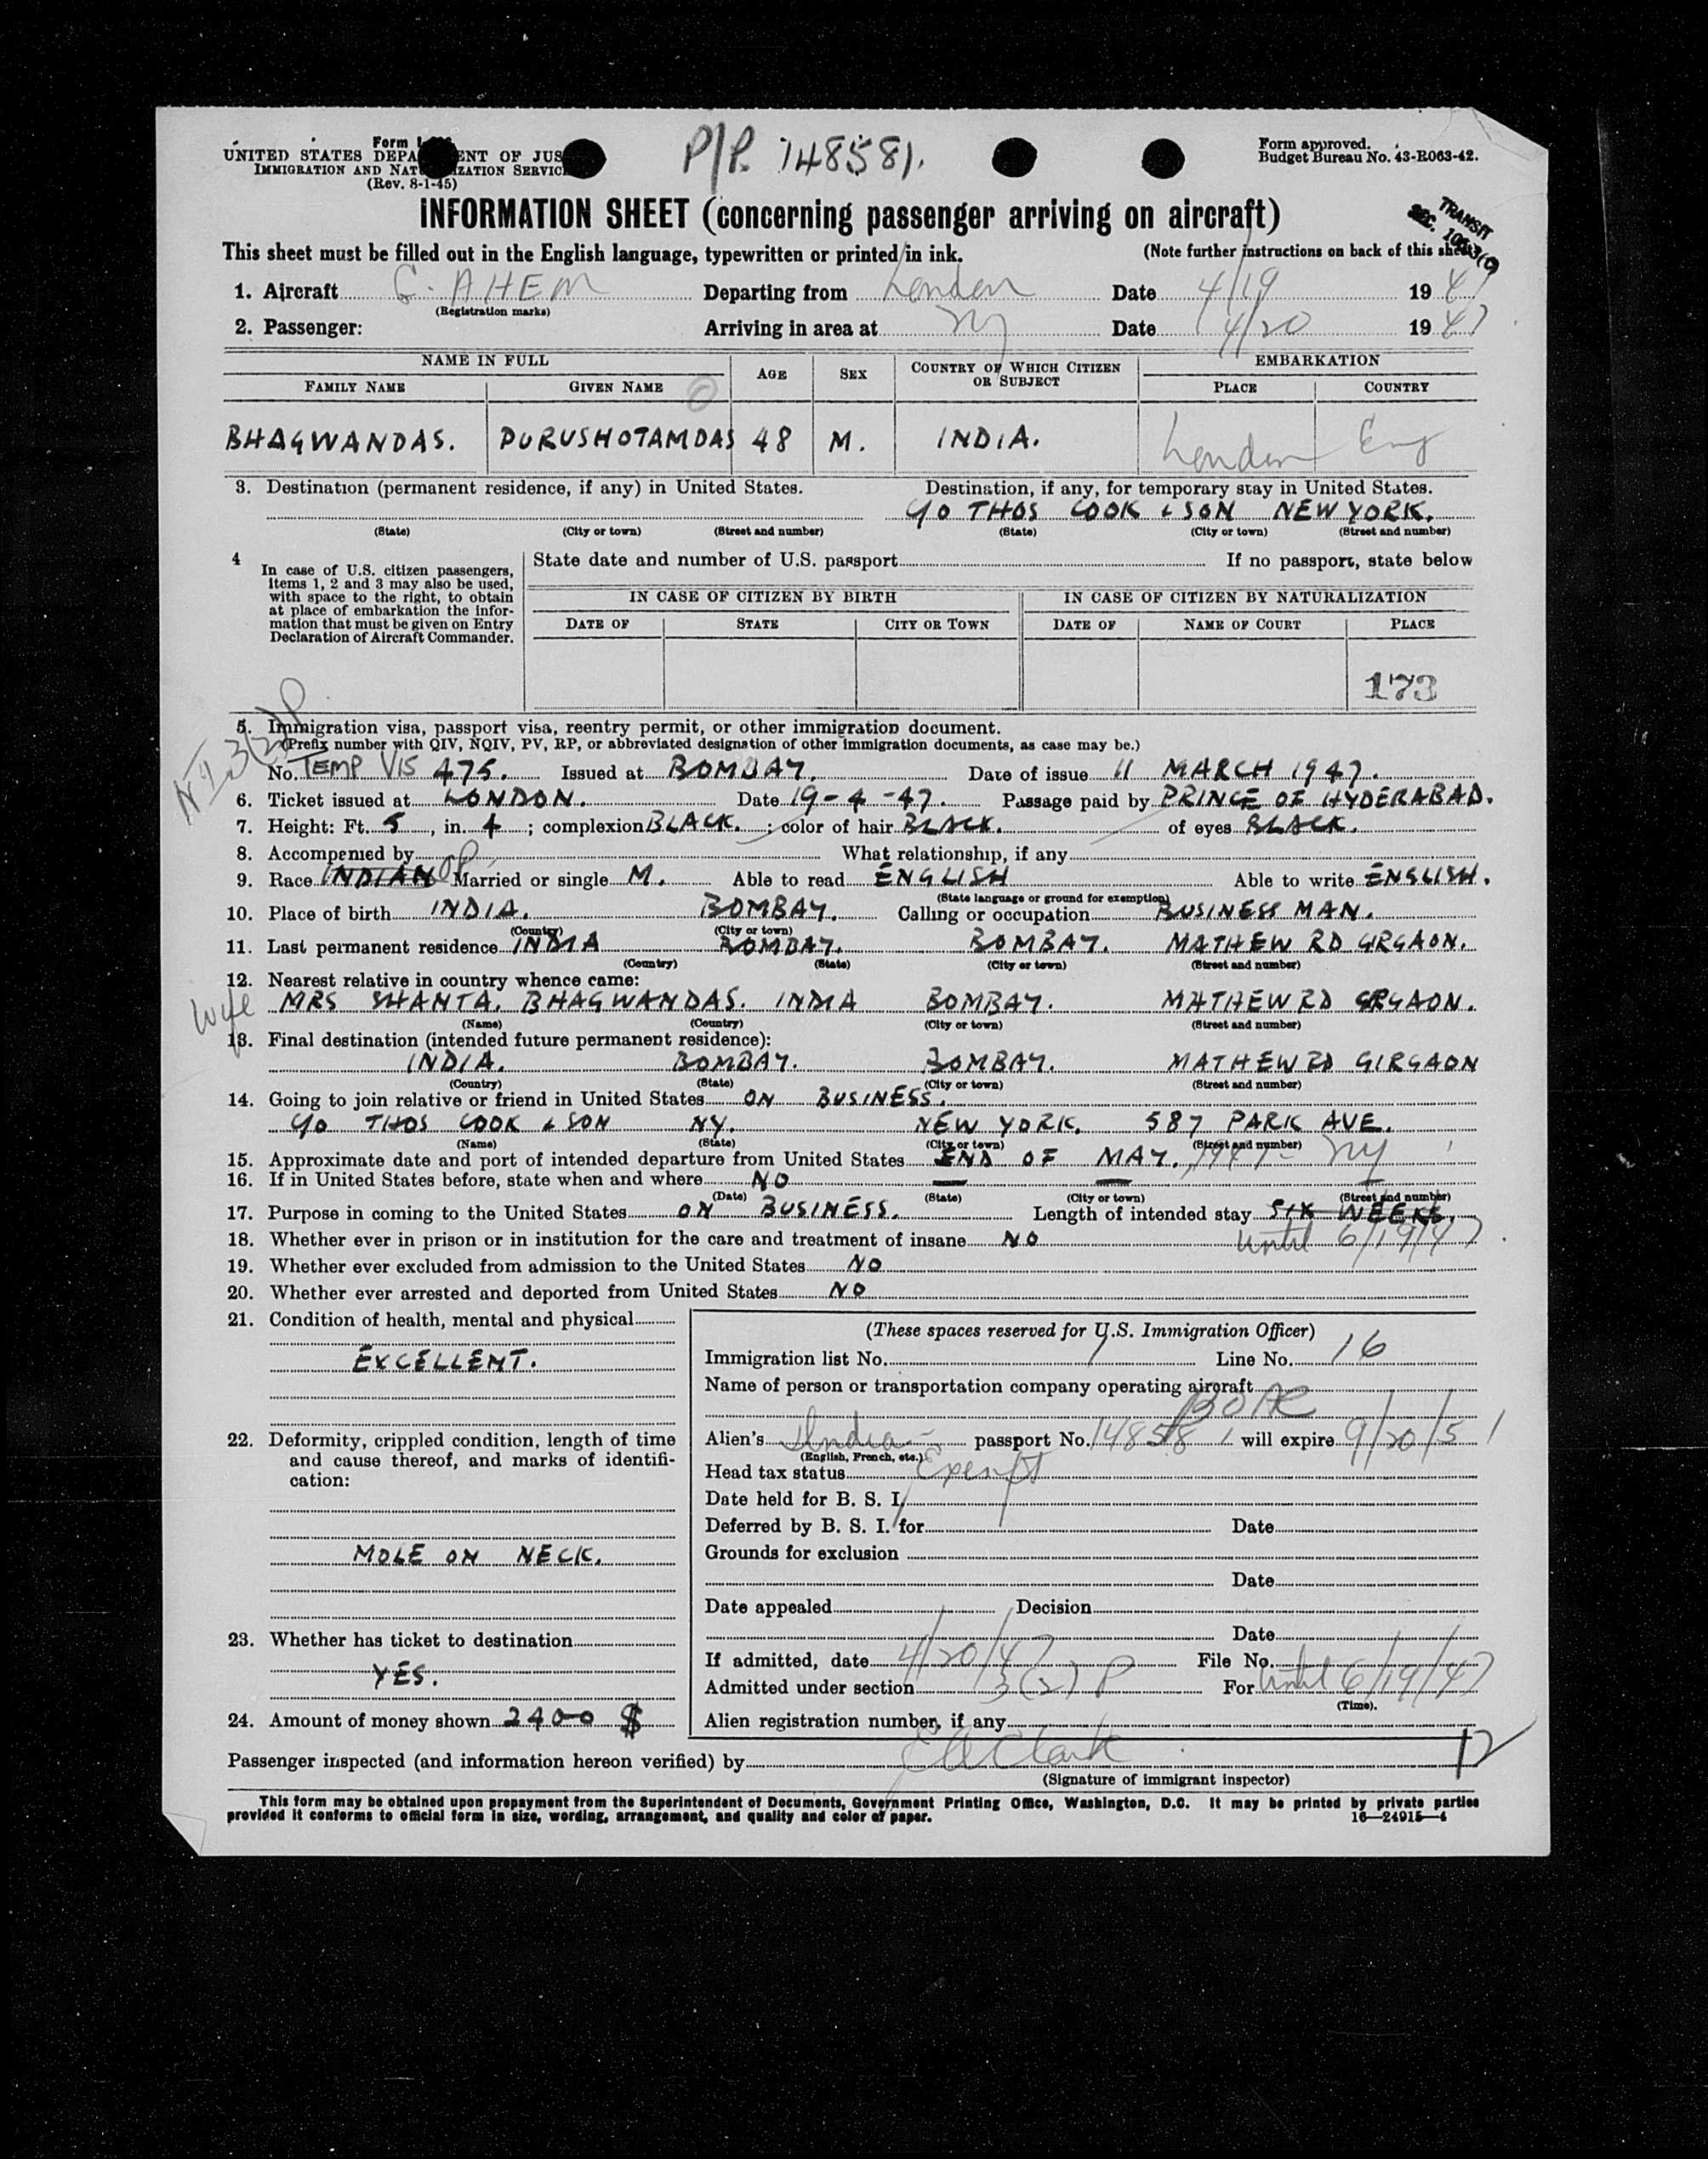 Form I
UNITED STATES DEPA ENT OF JUS
IMMIGRATION AND NAT IZATION SERVIC
(Rev. 8-1-45)
P/P. 148581.
Form approved.
Budget Bureau No. 43-R063-42.
INFORMATION SHEET (concerning passenger arriving on aircraft)
TRANSIT
SEC.
This sheet must be filled out in the English language, typewritten or printed in ink.
(Note further instructions on back of this sheet)
1. Aircraft G. AHEM Departing from London Date 4/19 1947
(Registration marks)
2. Passenger: Arriving in area at NY Date 4/20 1947
NAME IN FULL AGE SEX COUNTRY OF WHICH CITIZEN OR SUBJECT EMBARKATION
FAMILY NAME GIVEN NAME PLACE COUNTRY
BHAGWANDAS. PURUSHOTAMDAS 48 M. INDIA. London Eng
3. Destination (permanent residence, if any) in United States. Destination, if any, for temporary stay in United States.
C/O THOS COOK & SON NEW YORK.
(State) (City or town) (Street and number) (State) (City or town) (Street and number)
4 In case of U.S. citizen passengers, items 1, 2 and 3 may also be used, with space to the right, to obtain at place of embarkation the information that must be given on Entry Declaration of Aircraft Commander.
State date and number of U.S. passport If no passport, state below
IN CASE OF CITIZEN BY BIRTH IN CASE OF CITIZEN BY NATURALIZATION
DATE OF STATE CITY OR TOWN DATE OF NAME OF COURT PLACE
173
5. Immigration visa, passport visa, reentry permit, or other immigration document.
(Prefix number with QIV, NQIV, PV, RP, or abbreviated designation of other immigration documents, as case may be.)
3(2)P
No. TEMP VIS 475. Issued at BOMBAY. Date of issue 11 MARCH 1947.
6. Ticket issued at LONDON. Date 19-4-47. Passage paid by PRINCE OF HYDERABAD.
7. Height: Ft. 5, in. 4; complexion BLACK.; color of hair BLACK. of eyes BLACK.
8. Accompanied by What relationship, if any
9. Race INDIAN Married or single M. Able to read ENGLISH Able to write ENGLISH.
(State language or ground for exemption)
10. Place of birth INDIA. BOMBAY. Calling or occupation BUSINESS MAN.
(Country) (City or town)
11. Last permanent residence INDIA BOMBAY. BOMBAY. MATHEW RD GRGAON.
(Country) (State) (City or town) (Street and number)
12. Nearest relative in country whence came:
Wife MRS SHANTA. BHAGWANDAS. INDIA BOMBAY. MATHEW RD GRGAON.
(Name) (Country) (City or town) (Street and number)
13. Final destination (intended future permanent residence):
INDIA. BOMBAY. BOMBAY. MATHEW RD GIRGAON
(Country) (State) (City or town) (Street and number)
14. Going to join relative or friend in United States ON BUSINESS.
C/O THOS COOK & SON NY. NEW YORK. 587 PARK AVE.
(Name) (State) (City or town) (Street and number)
15. Approximate date and port of intended departure from United States END OF MAY. 1947- NY
16. If in United States before, state when and where NO — — —
(Date) (State) (City or town) (Street and number)
17. Purpose in coming to the United States ON BUSINESS. Length of intended stay SIX WEEKS.
18. Whether ever in prison or in institution for the care and treatment of insane NO until 6/19/47
19. Whether ever excluded from admission to the United States NO
20. Whether ever arrested and deported from United States NO
21. Condition of health, mental and physical
EXCELLENT.
22. Deformity, crippled condition, length of time and cause thereof, and marks of identification:
MOLE ON NECK.
23. Whether has ticket to destination
YES.
24. Amount of money shown 2400 $
(These spaces reserved for U.S. Immigration Officer)
Immigration list No. Line No. 16
Name of person or transportation company operating aircraft
BOAC
Alien's India passport No. 148581 will expire 9/20/51
(English, French, etc.)
Head tax status Exempt
Date held for B. S. I.
Deferred by B. S. I. for Date
Grounds for exclusion
Date
Date appealed Decision
Date
If admitted, date 4/20/47 File No.
Admitted under section 3(2)P For until 6/19/47
(Time).
Alien registration number, if any
Passenger inspected (and information hereon verified) by E A Clark 12
(Signature of immigrant inspector)
This form may be obtained upon prepayment from the Superintendent of Documents, Government Printing Office, Washington, D.C. It may be printed by private parties
provided it conforms to official form in size, wording, arrangement, and quality and color of paper. 16—24915-4